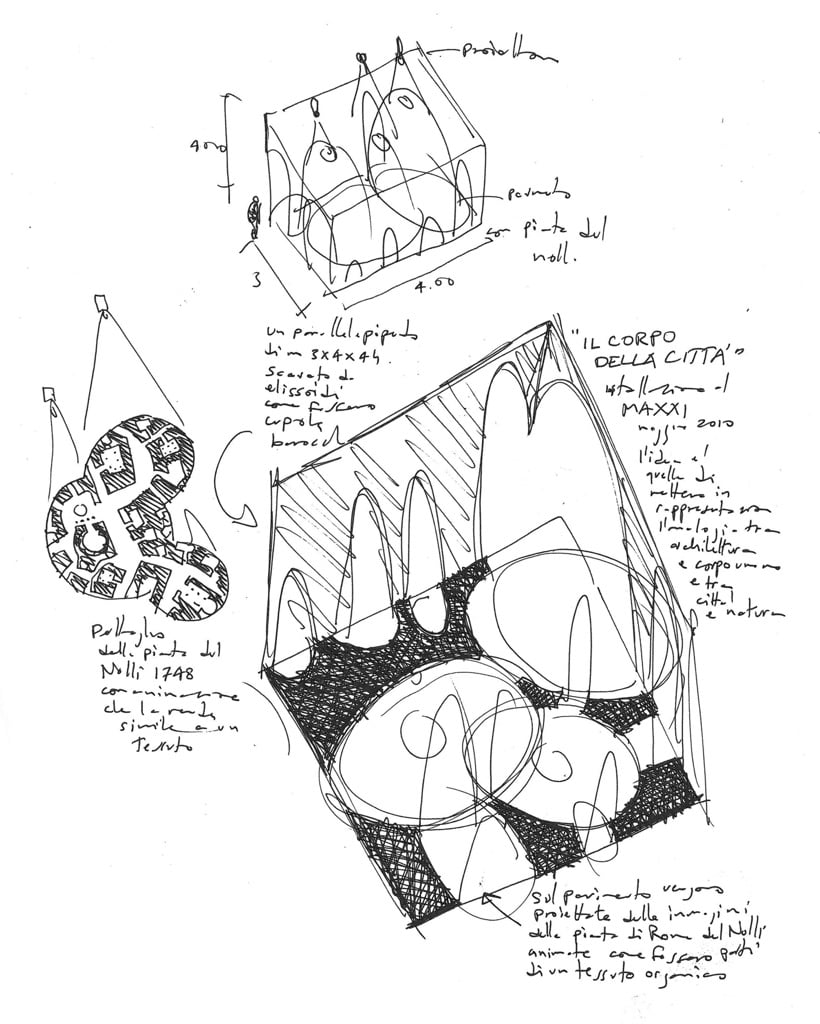 proiettori
4.00
pavimento
con pianta del
Nolli
3
4.00
un parallelepipedo
di m 3x4x4h.
scavato da
elissoidi
come fossero
cupole
barocche
"IL CORPO
DELLA CITTÀ"
installazione al
MAXXI
maggio 2010
l'idea è
quella di
mettere in
rappresentazione
l'analogia tra
architettura
e corpo umano
e tra
città
e natura
Dettaglio
della pianta del
Nolli 1748
con animazione
che la rende
simile a un
tessuto
sul pavimento vengono
proiettate delle immagini
della pianta di Roma del Nolli
animate come fossero parti
di un tessuto organico